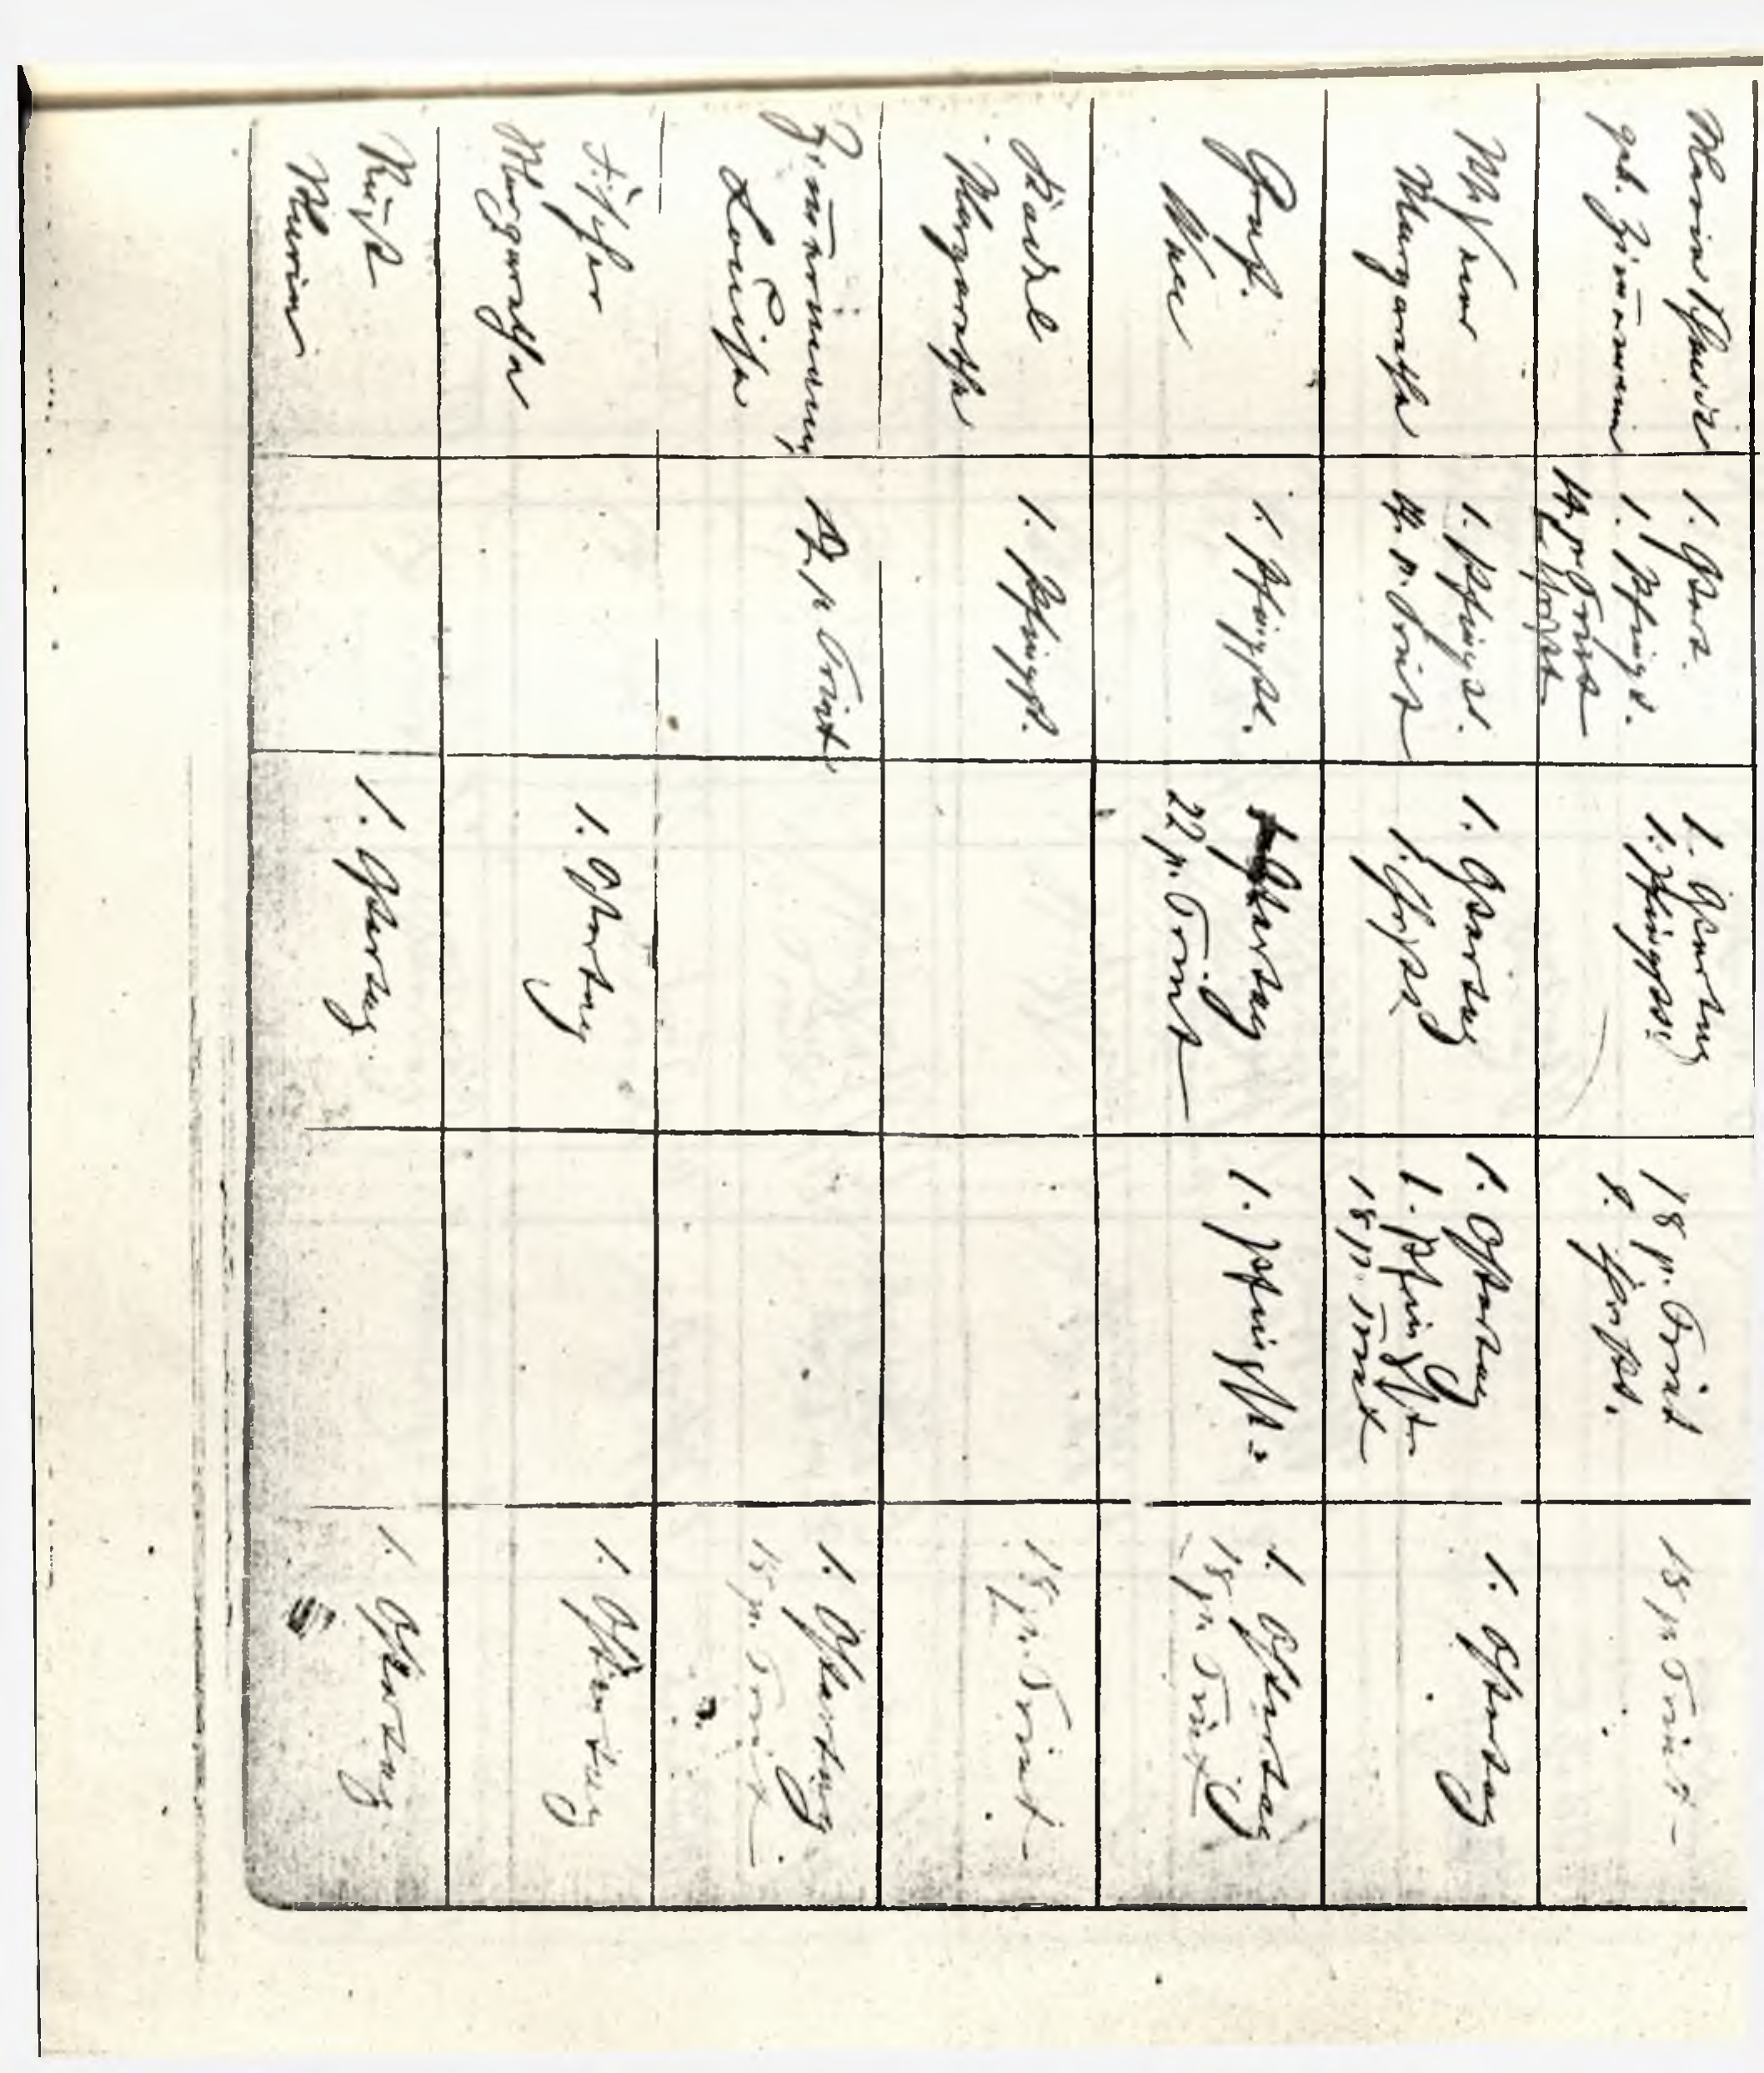 geb. Zim̄ermann
1. Ostert.
1. Pfingst.
14. p. Trinit
1. Ostertag
1. Pfingstt.
18 p. Trinit
1. Christ.
18 p. Trinit
Margaretha
1. Pfingst.
14. p. Trinit
1. Ostertag
1. Christ
1. Ostertag
1. Pfingst
18 p. Trinit
1. Ostertag
1. Pfingst.
1. Ostertag
22 p. Trinit
1. Pfingst
1. Ostertag
18 p. Trinit
Margaretha
1. Pfingst.
18 p. Trinit
Zim̄ermann
Louisa
p. Trinit
1. Ostertag
18 p. Trinit
Fischer
Margaretha
1. Ostertag
1. Ostertag
Maria
1. Ostertag
1. Ostertag